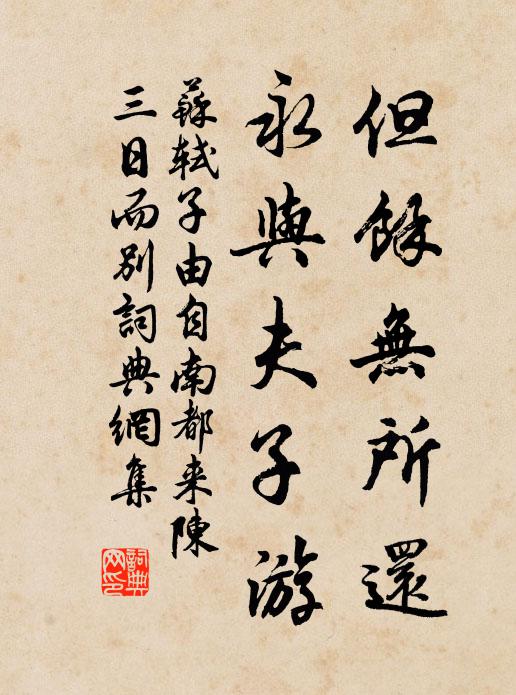 但餘無所還
永與夫子游
蘇軾子由自南都来陳
三日而别詞典網集
詞典網印